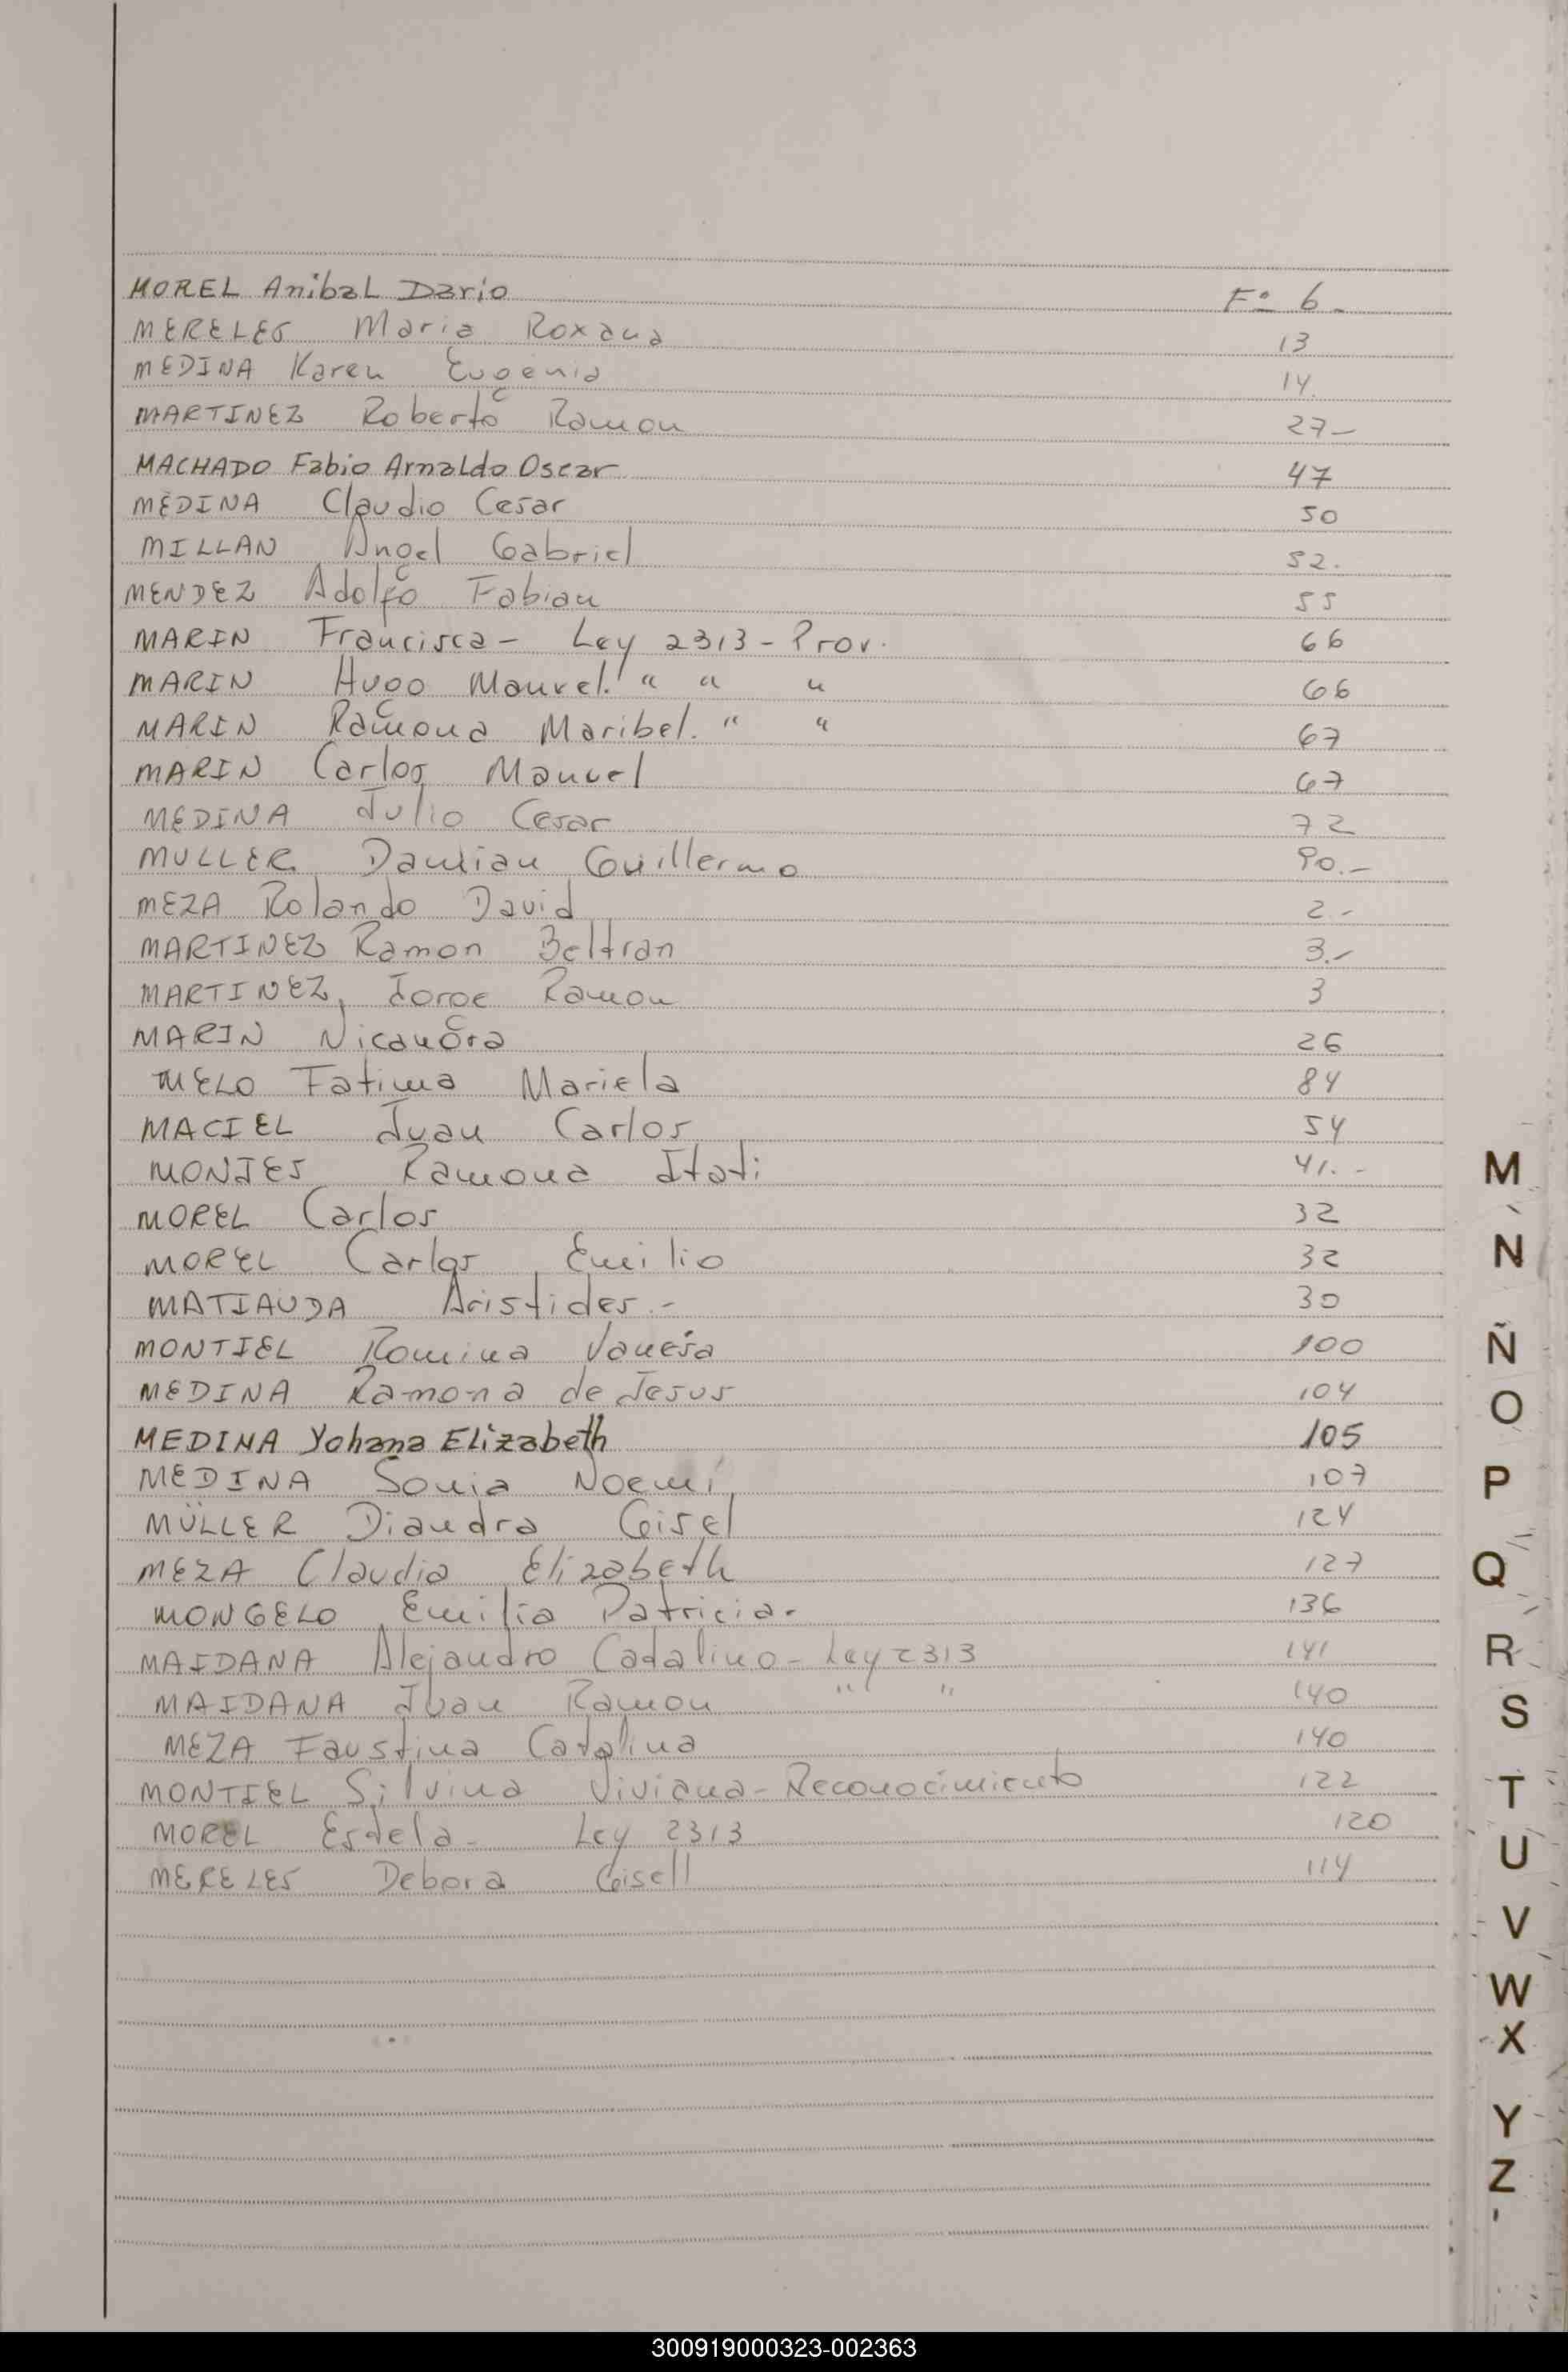 MOREL Anibal Dario Fº 6-
MERELES Maria Roxana 13
MEDINA Karen Eugenia 14.
MARTINEZ Roberto Ramon 27-
MACHADO Fabio Arnaldo Oscar 47
MEDINA Claudio Cesar 50
MILLAN Angel Gabriel 52.
MENDEZ Adolfo Fabian 55
MARIN Francisca - Ley 2313 - Prov. 66
MARIN Hugo Manuel. " " " 66
MARIN Ramona Maribel. " " 67
MARIN Carlos Manuel 67
MEDINA Julio Cesar 72
MULLER Damian Guillermo 90.-
MEZA Rolando David 2.-
MARTINEZ Ramon Beltran 3.-
MARTINEZ, Jorge Ramon 3
MARIN Nicandra 26
MELO Fatima Mariela 84
MACIEL Juan Carlos 54
MONTES Ramona Itati 41.-
MOREL Carlos 32
MOREL Carlos Emilio 32
MATIAUDA Aristides.- 30
MONTIEL Romina Vanesa 100
MEDINA Ramona de Jesus 104
MEDINA Yohana Elizabeth 105
MEDINA Sonia Noemi 107
MÜLLER Diandra Gisel 124
MEZA Claudia Elizabeth 127
MONGELO Emilia Patricia. 136
MAIDANA Alejandro Catalino - Ley 2313 141
MAIDANA Juan Ramon " " 140
MEZA Faustina Catalina 140
MONTIEL Silvina Viviana - Reconocimiento 122
MOREL Estela - Ley 2313 120
MERELES Debora Gisell 114
M
N
Ñ
O
P
Q
R
S
T
U
V
W
X
Y
Z
300919000323-002363